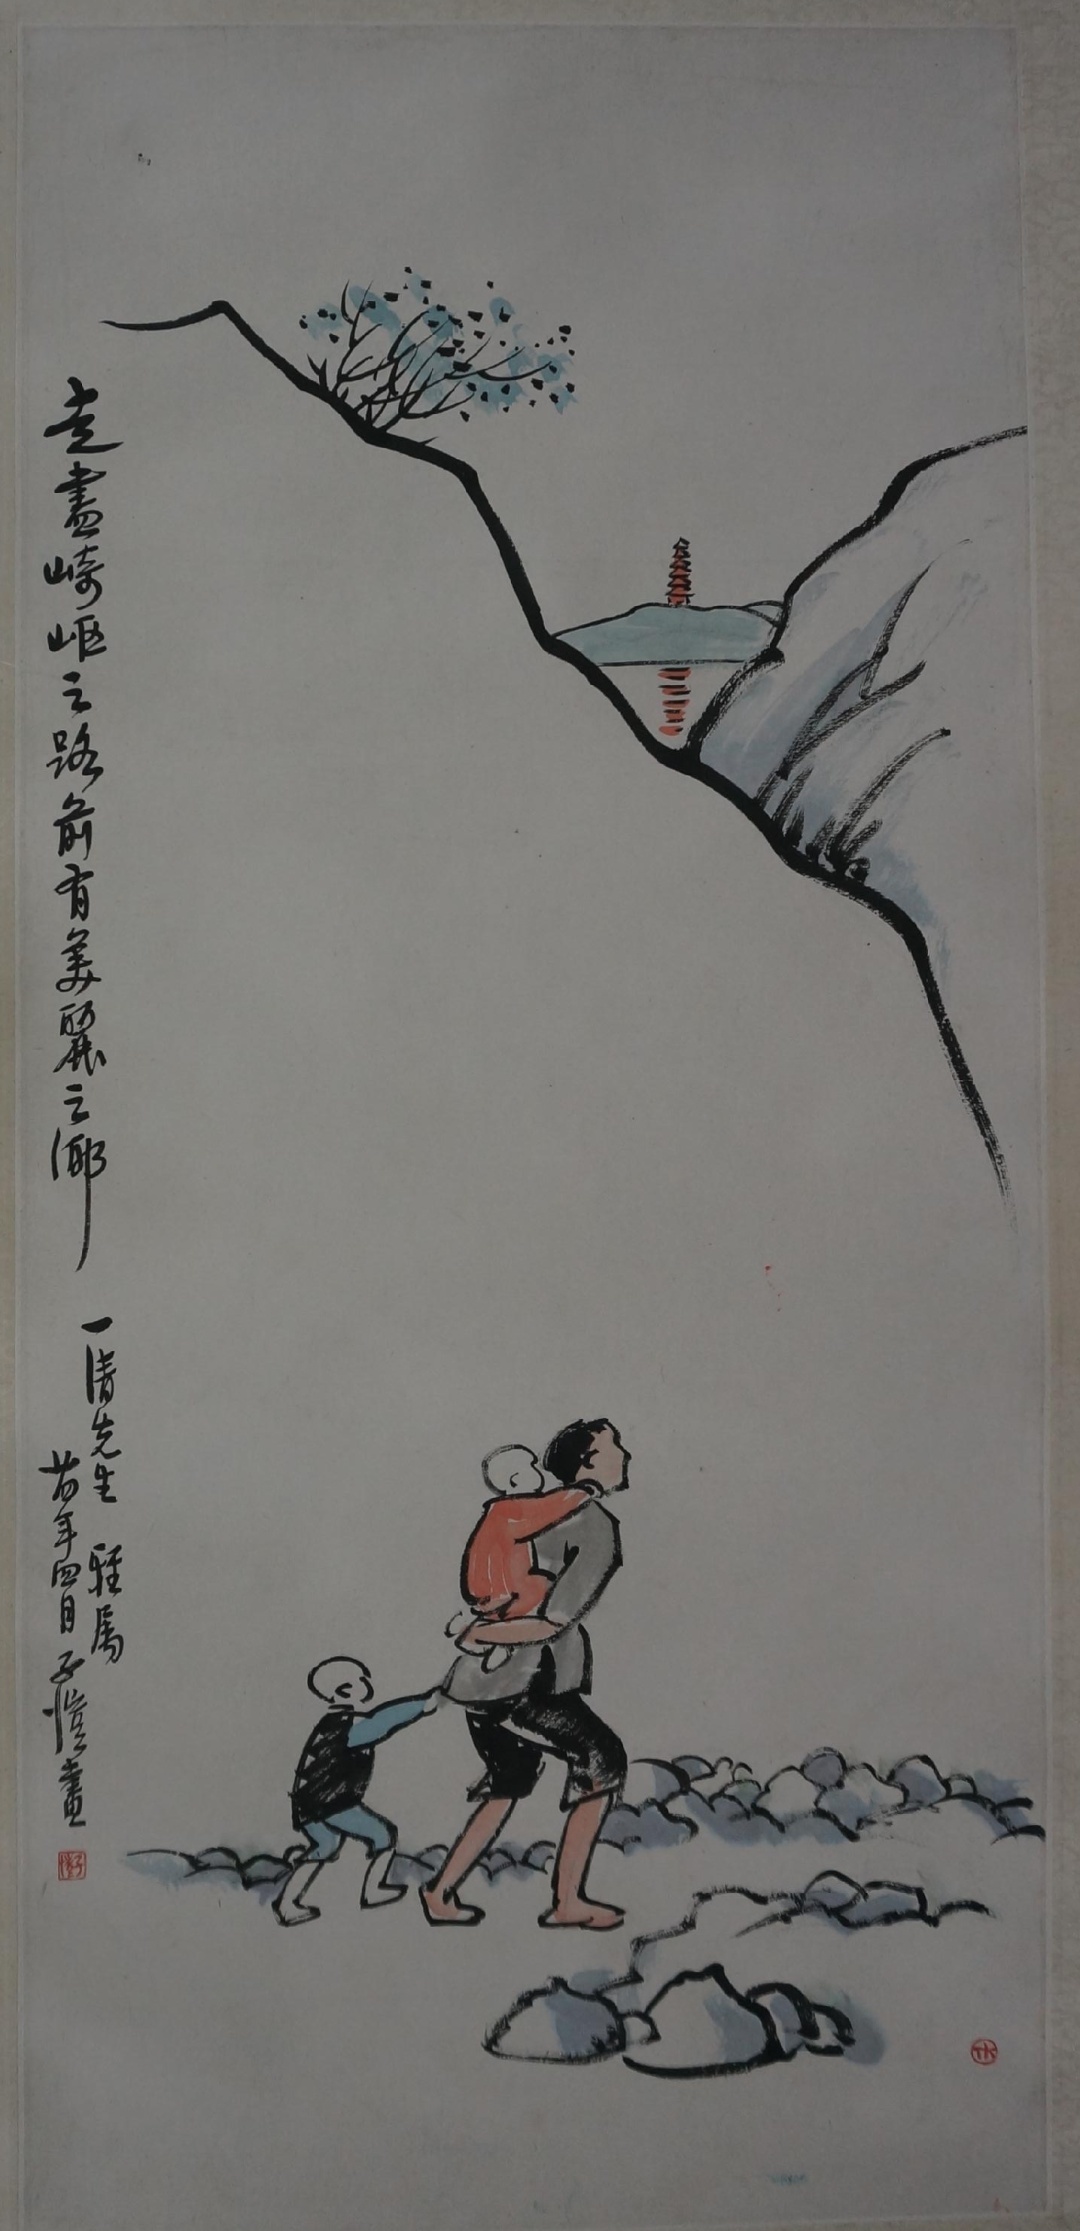 走盡崎岖之路前有美麗之鄉
一清先生 雅属
卅年四月 子愷畫
TK